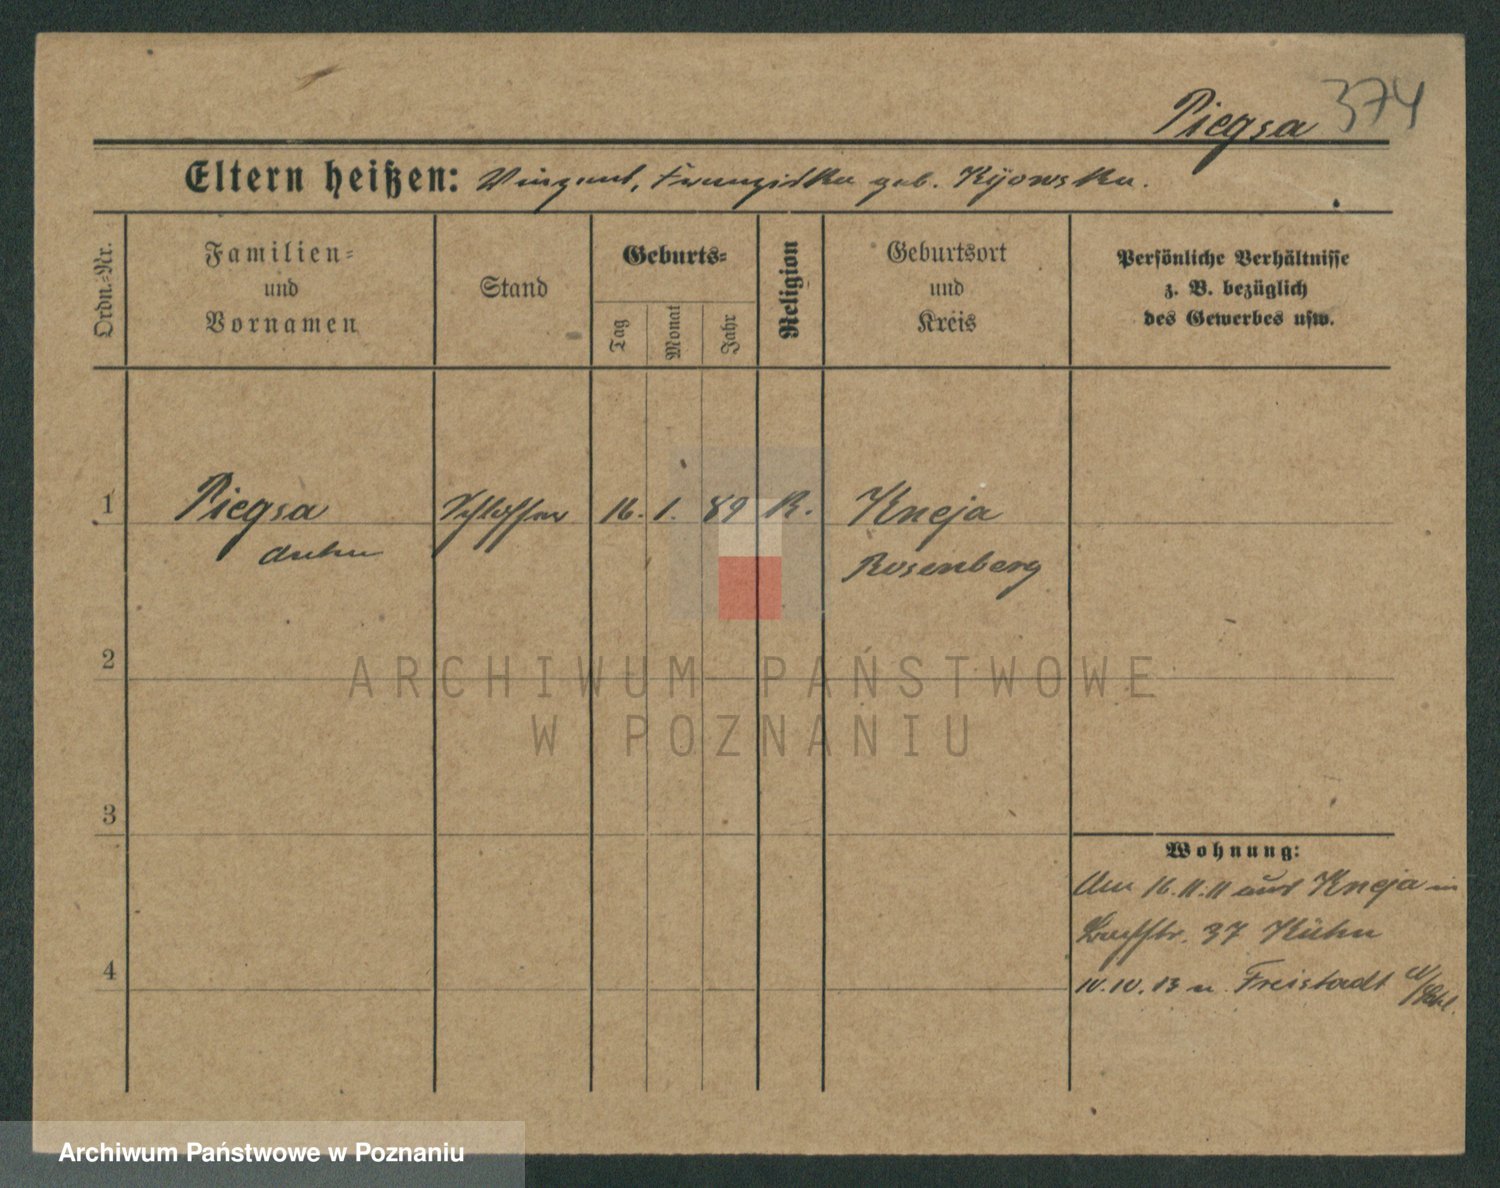 Piegsa 374
Eltern heißen: Vinzent, Franziska geb. Kijowska.
Ordn.-Nr.
Familien- und Vornamen
Stand
Geburts-
Tag
Monat
Jahr
Religion
Geburtsort und Kreis
Persönliche Verhältnisse
z. B. bezüglich
des Gewerbes usw.
1 Piegsa Schlosser 16. 1. 89 R. Kneja
Rosenberg
2
3
4
Wohnung:
Am 16.11.11 aus Kneja in
37 Kühn
IV.IV.13 n. Freistadt
ARCHIWUM PAŃSTWOWE
W POZNANIU
Archiwum Państwowe w Poznaniu